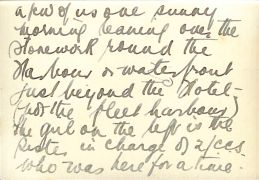 a few of us one sunny
morning leaning over the
stonework round the
Harbour or waterfront
just beyond the Hotel -
(not the fleet harbour)
The girl on the left is the
Sister in charge of 2/CCS.
who was here for a time.